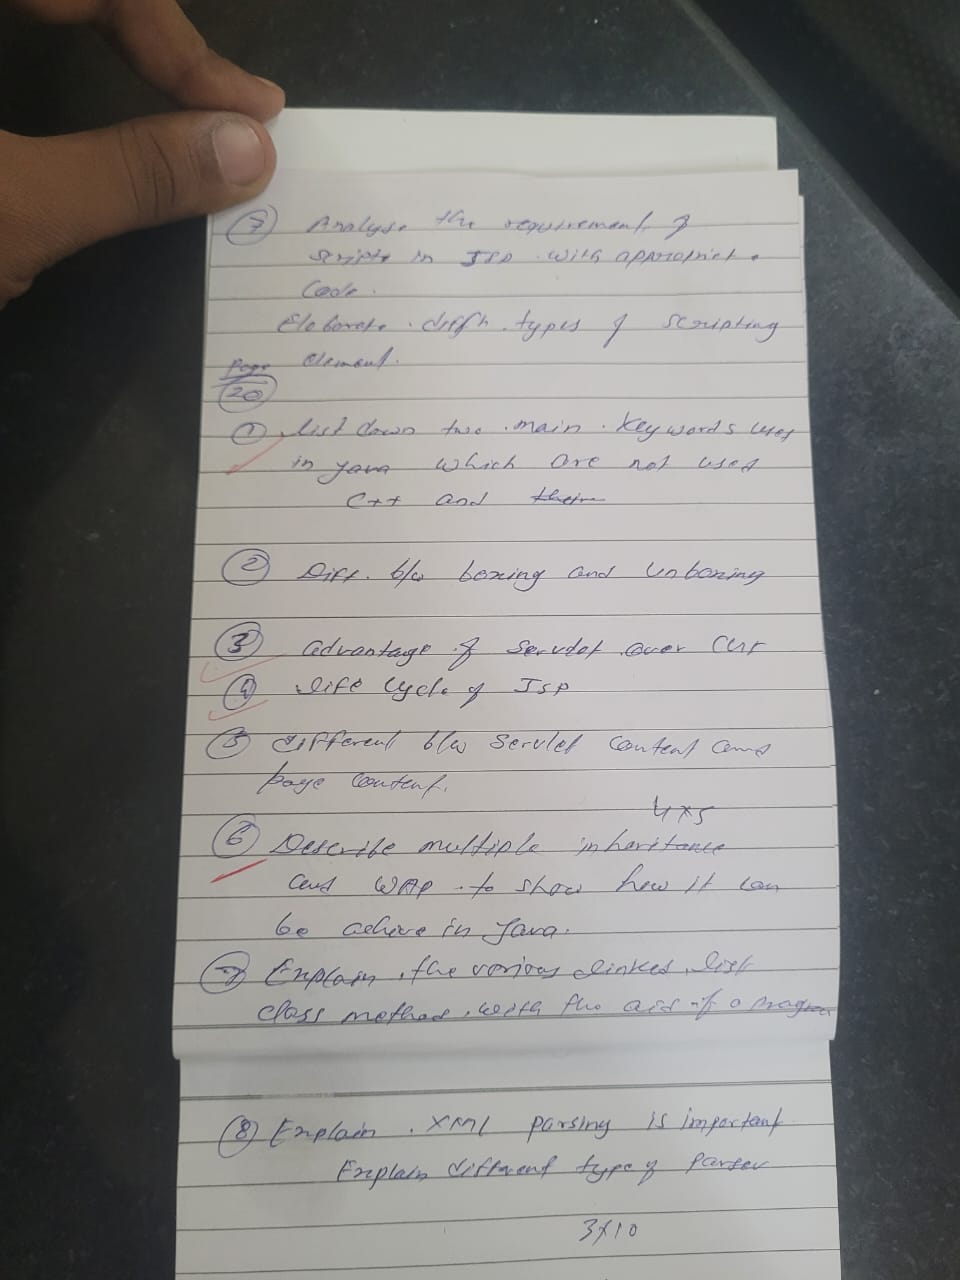 7 Analyse the requirement of
scripts in JSP with appropriate
Code.
Elaborate diffn types of scripting
element.
Page
20
1 list down two main keywords uses
in java which are not used
C++ and their
2 Diff. b/w boxing and unboxing
3 advantage of Servlet over
4 life cycle of JSP
5 different b/w Servlet content and
page content.
4x5
6 Describe multiple inheritance
and WAP to show how it can
be achieve in Java.
7 Explain the various linked list
class method with the aid of a program
8 Explain XML parsing is important
Explain different type of Parser
3x10